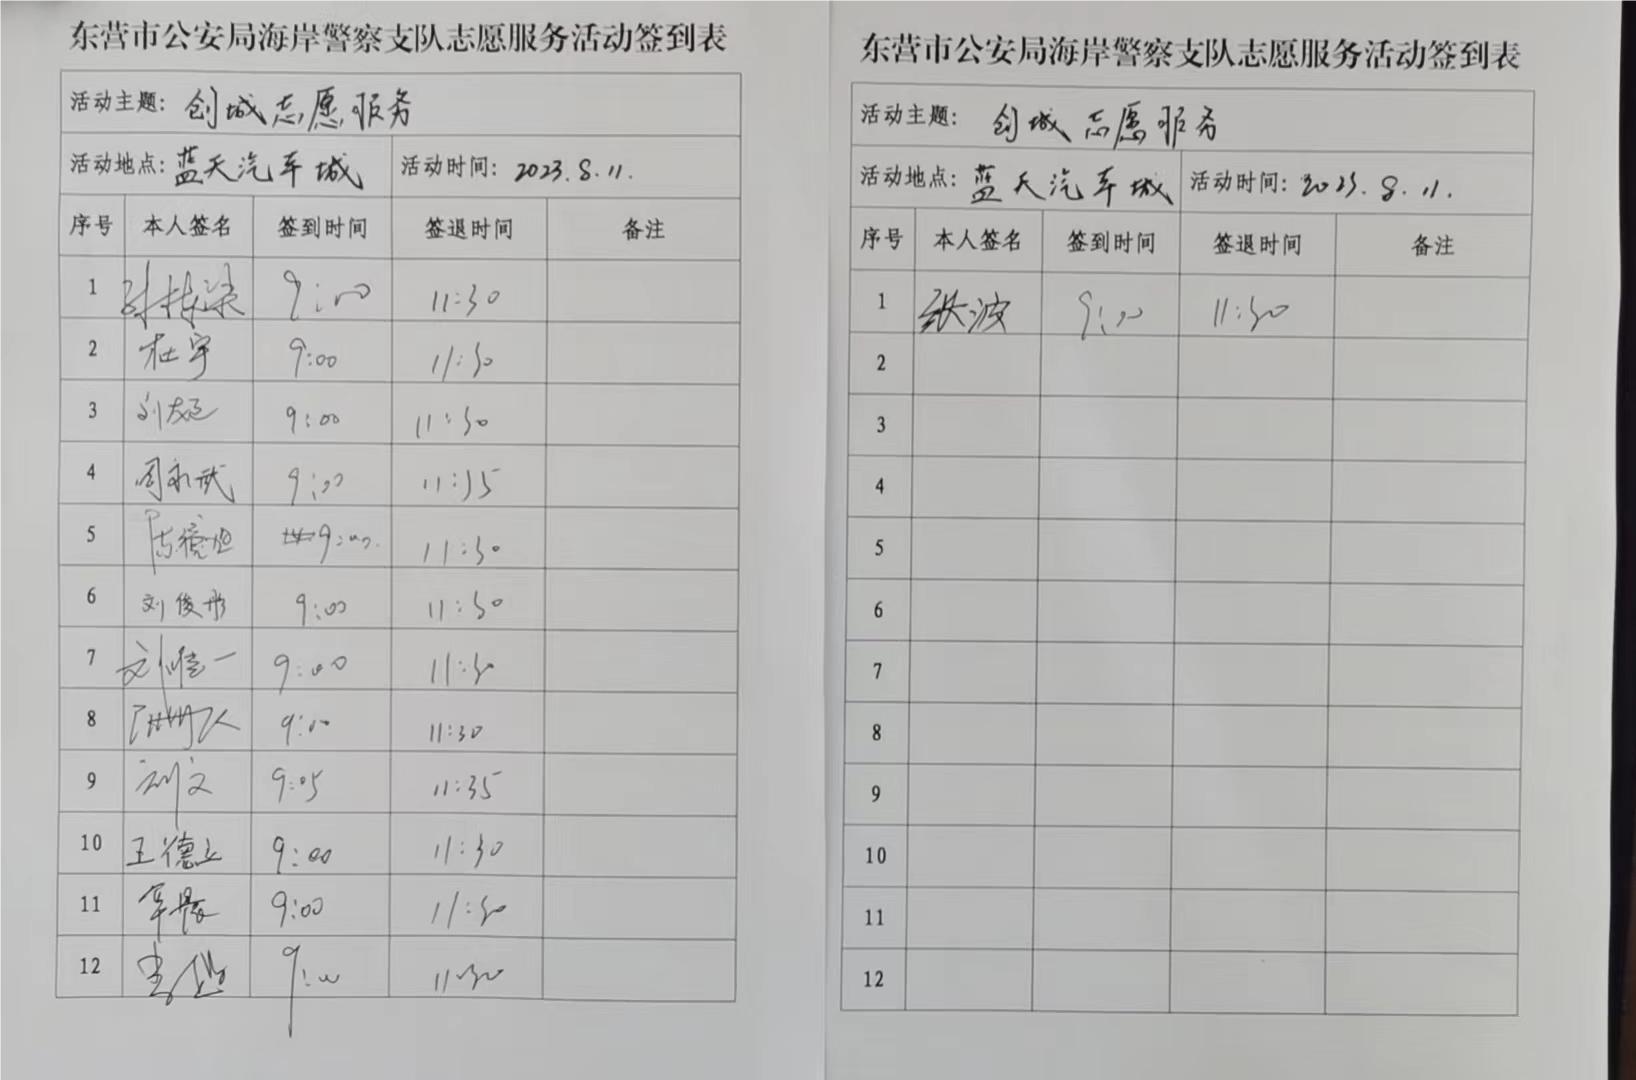 东营市公安局海岸警察支队志愿服务活动签到表
活动主题：创城志愿服务
活动地点：蓝天汽车城 活动时间：2023.8.11.
序号 本人签名 签到时间 签退时间 备注
1 9:00 11:30
2 杜宇 9:00 11:30
3 9:00 11:30
4 周永武 9:00 11:35
5 9:00. 11:30
6 刘俊彤 9:00 11:30
7 刘唯一 9:00 11:30
8 9:00 11:30
9 刘文 9:05 11:35
10 王德立 9:00 11:30
11 9:00 11:30
12 9:00 11:30
东营市公安局海岸警察支队志愿服务活动签到表
活动主题：创城志愿服务
活动地点：蓝天汽车城 活动时间：2023.8.11.
序号 本人签名 签到时间 签退时间 备注
1 张波 9:00 11:30
2
3
4
5
6
7
8
9
10
11
12